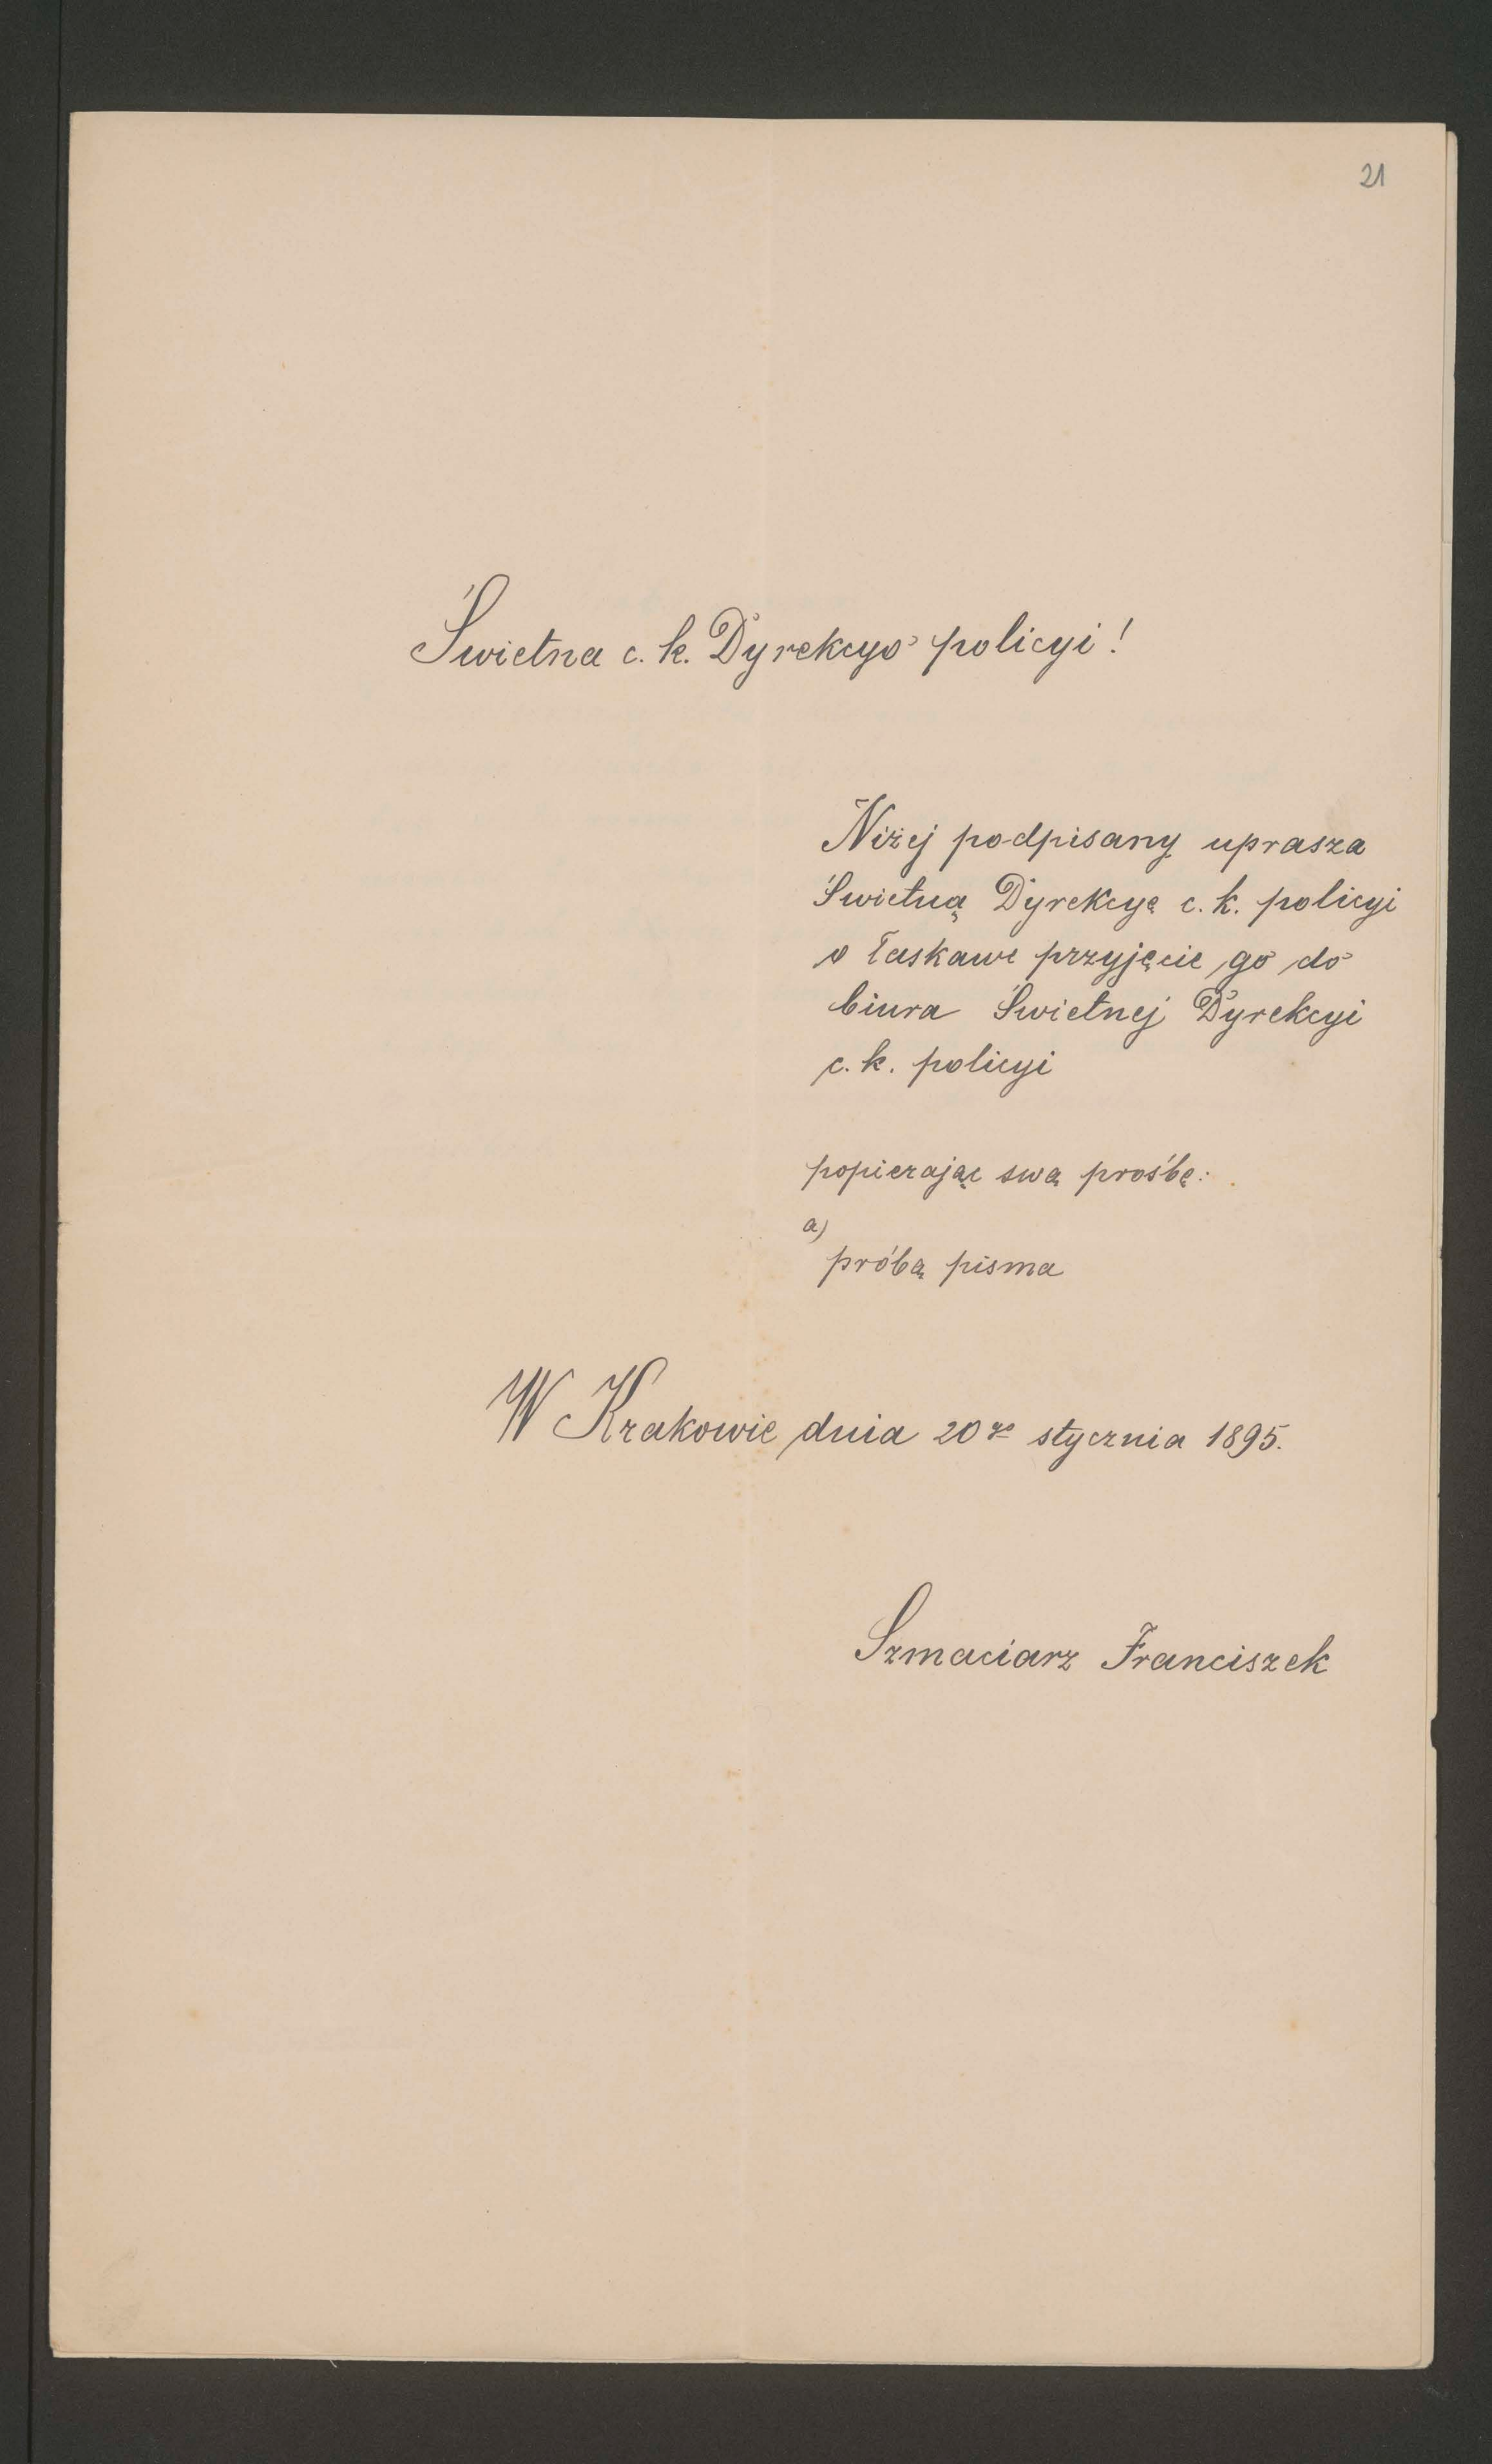 21
Świetna c. k. Dyrekcyo policyi!
Niżej podpisany uprasza
Świetną Dyrekcyę c. k. policyi
o łaskawe przyjęcie go do
biura Świetnej Dyrekcyi
c. k. policyi
popierając swą prośbę:
a)
próbą pisma
W Krakowie dnia 20go stycznia 1895.
Szmaciarz Franciszek